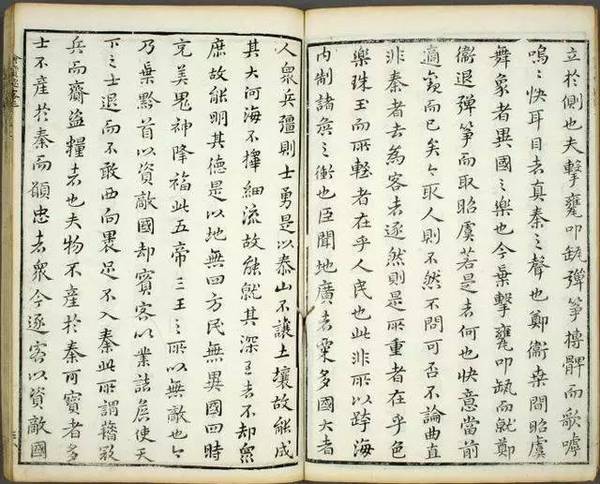 立於側也夫擊甕叩缻彈箏搏髀而歌嘑
嗚〻快耳目者真秦之聲也鄭衛桑間昭虞
舞象者異國之樂也今棄擊甕叩缻而就鄭
衛退彈箏而取昭虞若是者何也快意當前
適觀而已矣今取人則不然不問可否不論曲直
非秦者去為客者逐然則是所重者在乎色
樂珠玉而所輕者在乎人民也此非所以跨海
內制諸侯之術也臣聞地廣者粟多國大者
人眾兵彊則士勇是以泰山不讓土壤故能成
其大河海不擇細流故能就其深王者不却衆
庶故能明其德是以地無四方民無異國四時
充美鬼神降福此五帝三王之所以無敵也今
乃棄黔首以資敵國却賓客以業諸侯使天
下之士退而不敢西向裹足不入秦此所謂藉寇
兵而齎盜糧者也夫物不產於秦可寶者多
士不產於秦而願忠者衆今逐客以資敵國